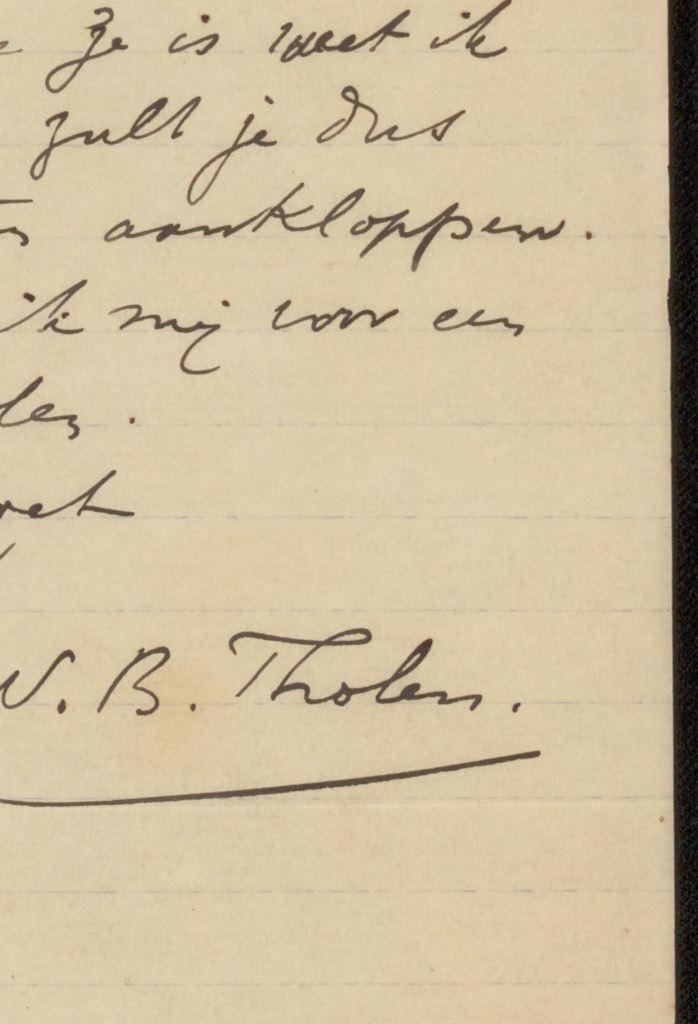 ze is weet ik
zult je dus
aankloppen.
ik mij voor een
W. B. Tholen.